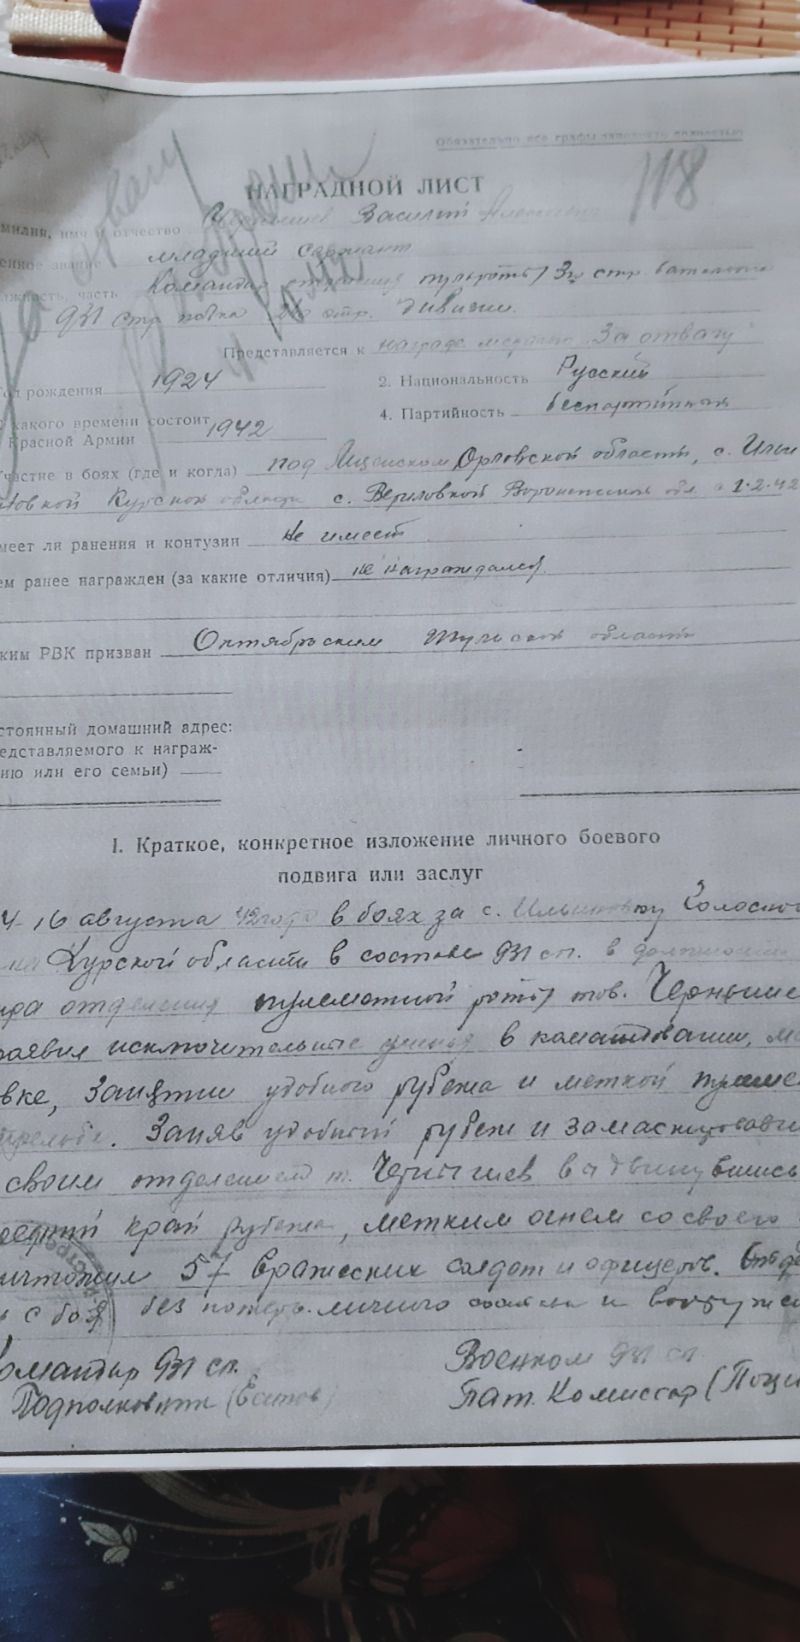 Обязательно все графы заполнять полностью
118
НАГРАДНОЙ ЛИСТ
милия, имя и отчество Василий
енное звание младший сержант
лжность, часть Командир отделения пульроты 3го стр. батальона
931 стр полка стр. дивизии.
Представляется к награде медалью За отвагу
од рождения 1924 2. Национальность Русский
какого времени состоит 4. Партийность беспартийный
Красной Армии 1942
Участие в боях (где и когда) под Орловской области, с. Ильи
новкой Курской области с. Воронежской обл. с 1.2.42
меет ли ранения и контузии Не имеет
ем ранее награжден (за какие отличия) не награждался
ким РВК призван Октябрьским Тульской области
стоянный домашний адрес:
едставляемого к награж-
нию или его семьи)
I. Краткое, конкретное изложение личного боевого
подвига или заслуг
4-16 августа 42 года в боях за с. Ильиновку
на Курской области в составе 931 сп. в должности
ира отделения пулеметной роты тов. Черныше
роявил исключительные в командовании, м
вке, занятии удобного рубежа и меткой пулеме
стрельбе. Заняв удобный рубеж и замаскировавши
своим отделением т. Чернышев выдвинувшись
редний край рубежа, метким огнем со своего
ичтожил 57 вражеских солдат и офицеров.
с боя без потерь личного состава и вооружен
Командир 931 сп. Военком 931 сп
Подполковник Бат. Комиссар